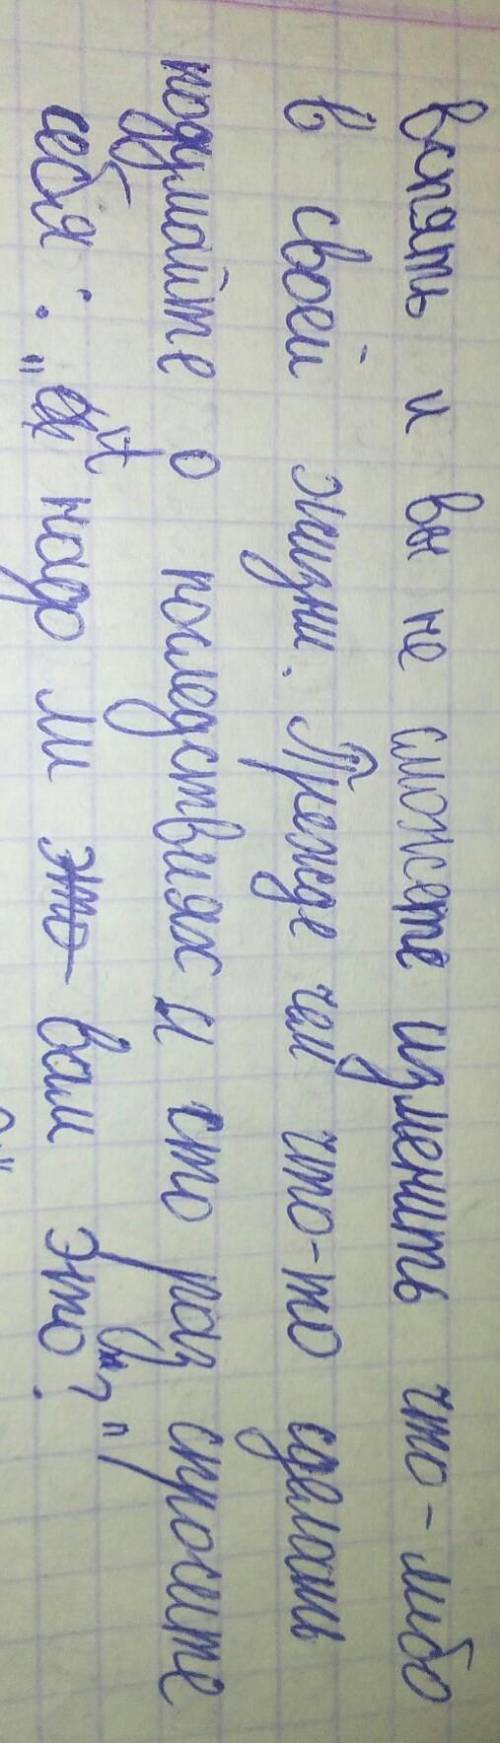 вспять и вы не сможете изменить что-либо
в своей жизни. Прежде чем что-то сделать
подумайте о последствиях и сто раз спросите
себя: „А надо ли это вам это?"